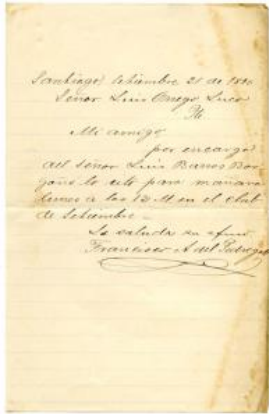 Santiago, Setiembre 21 de 18
Señor Luis Orrego Luco
Pte
Mi amigo
por encargo
del señor Luis Barros Bor
goño lo cito para mañana
lunes a las 12 M en el club
de Setiembre.
Le saluda su afmo
Francisco A del